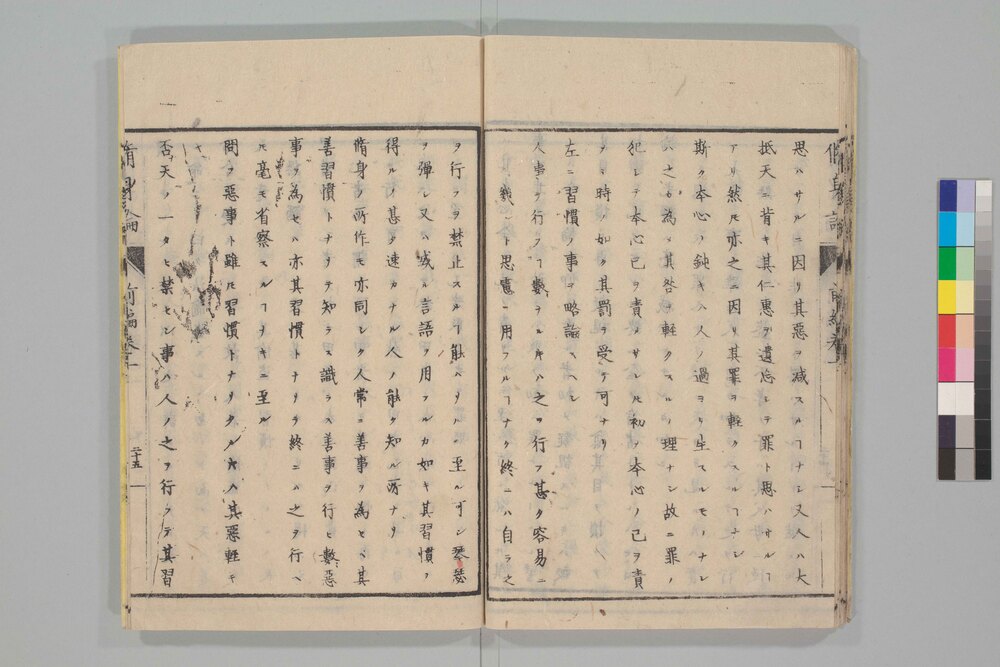 思ハサルニ因リ其惡ヲ減スルヿナシ又人ハ大
抵天ニ背キ其仁惠ヲ遺忘シテ罪ト思ハサルヿ
アリ然ㇾ𪜈亦之ニ因リ其罪ヲ輕クスルヿナシ
斯ク本心ノ鈍キハ人ノ過ヨリ生スルモノナレ
ハ之カ為メ其咎ヲ輕クスルノ理ナシ故ニ罪ヲ
犯シテ本心己ヲ責メサル𪜈初メ本心ノ己ヲ責
メシ時ノ如ク其罰ヲ受ク可ナリ
左ニ習慣ノ事ヲ略論スヘシ
人事ヲ行フヿ數々ナルキハ之ヲ行フ甚タ容易ニ
シテ思慮ヲ用フルヿナク終ニハ自ラ之
ヲ行フヲ禁止スルヿ能ハサルニ至ル可シ琴瑟
ヲ彈シ又ハ或ル言語ヲ用フルカ如キ其習慣ヲ
得ルノ甚タ速カナル人ノ能ク知ル所ナリ
脩身ノ所作モ亦同シク人常ニ善事ヲ為セハ其
善習慣トナリテ知ラス識ラス善事ヲ行ヒ數惡
事ヲ為セハ亦其習慣トナリテ終ニハ之ヲ行ヘ
𪜈毫モ省察スルヿナキニ至ル
問フ惡事ト雖𪜈習慣トナリタルキハ其惡輕キ
ヤ
否天ノ一タヒ禁セシ事ハ人ノ之ヲ行フテ其習
脩身論 前編卷一 二十五